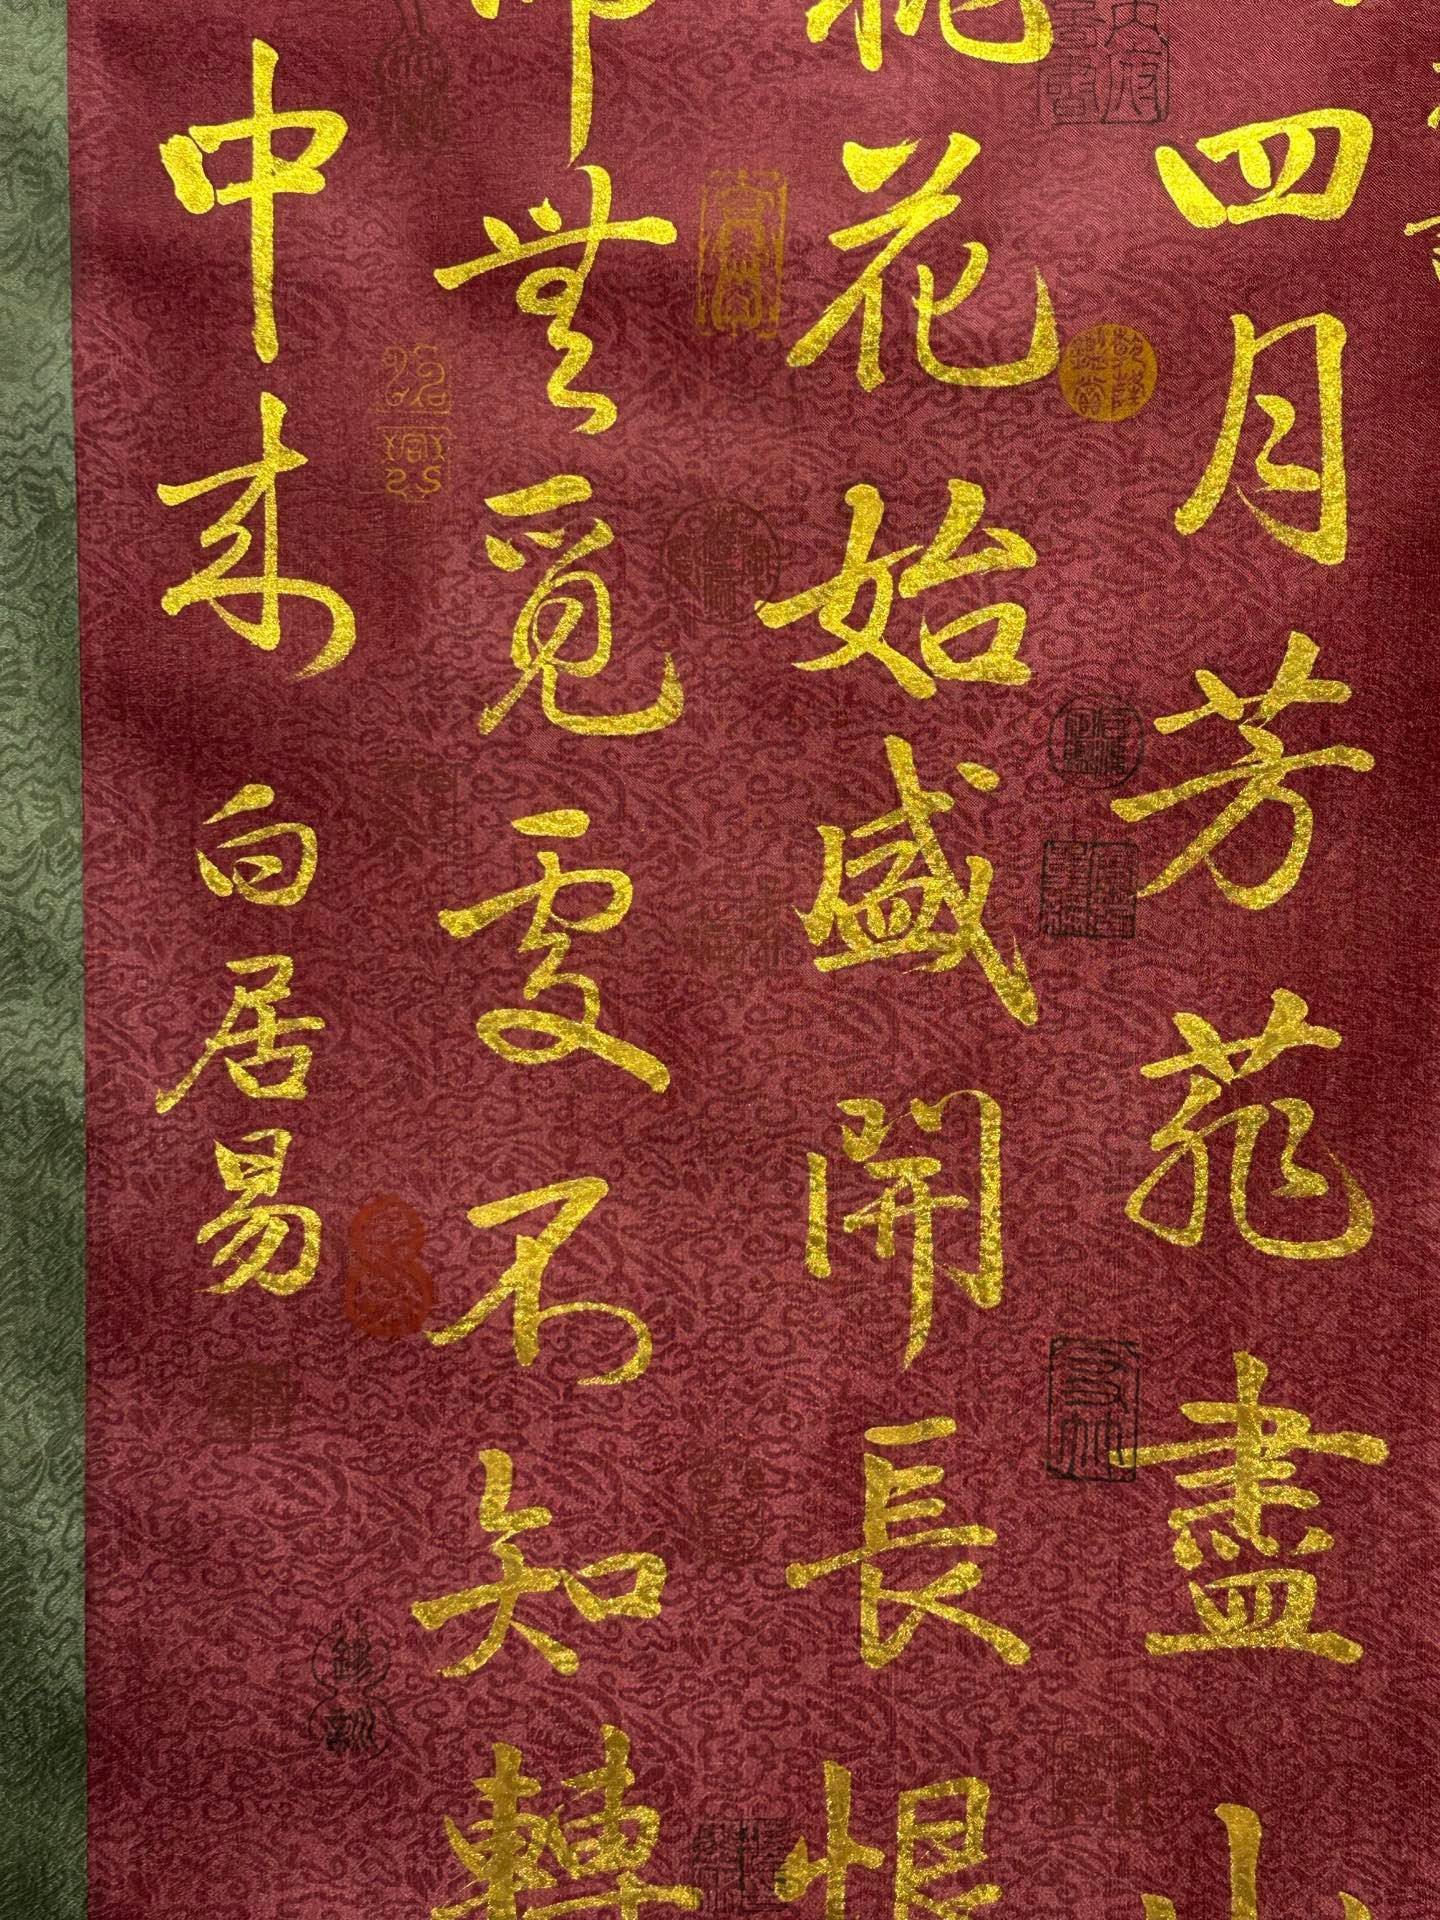 四月芳菲盡山
桃花始盛開長恨
歸無覓處不知轉
中來
白居易